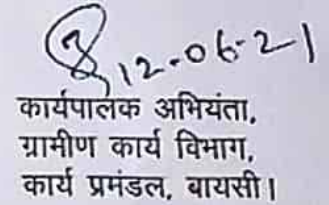 12-06-21
कार्यपालक अभियंता,
ग्रामीण कार्य विभाग,
कार्य प्रमंडल, बायसी।